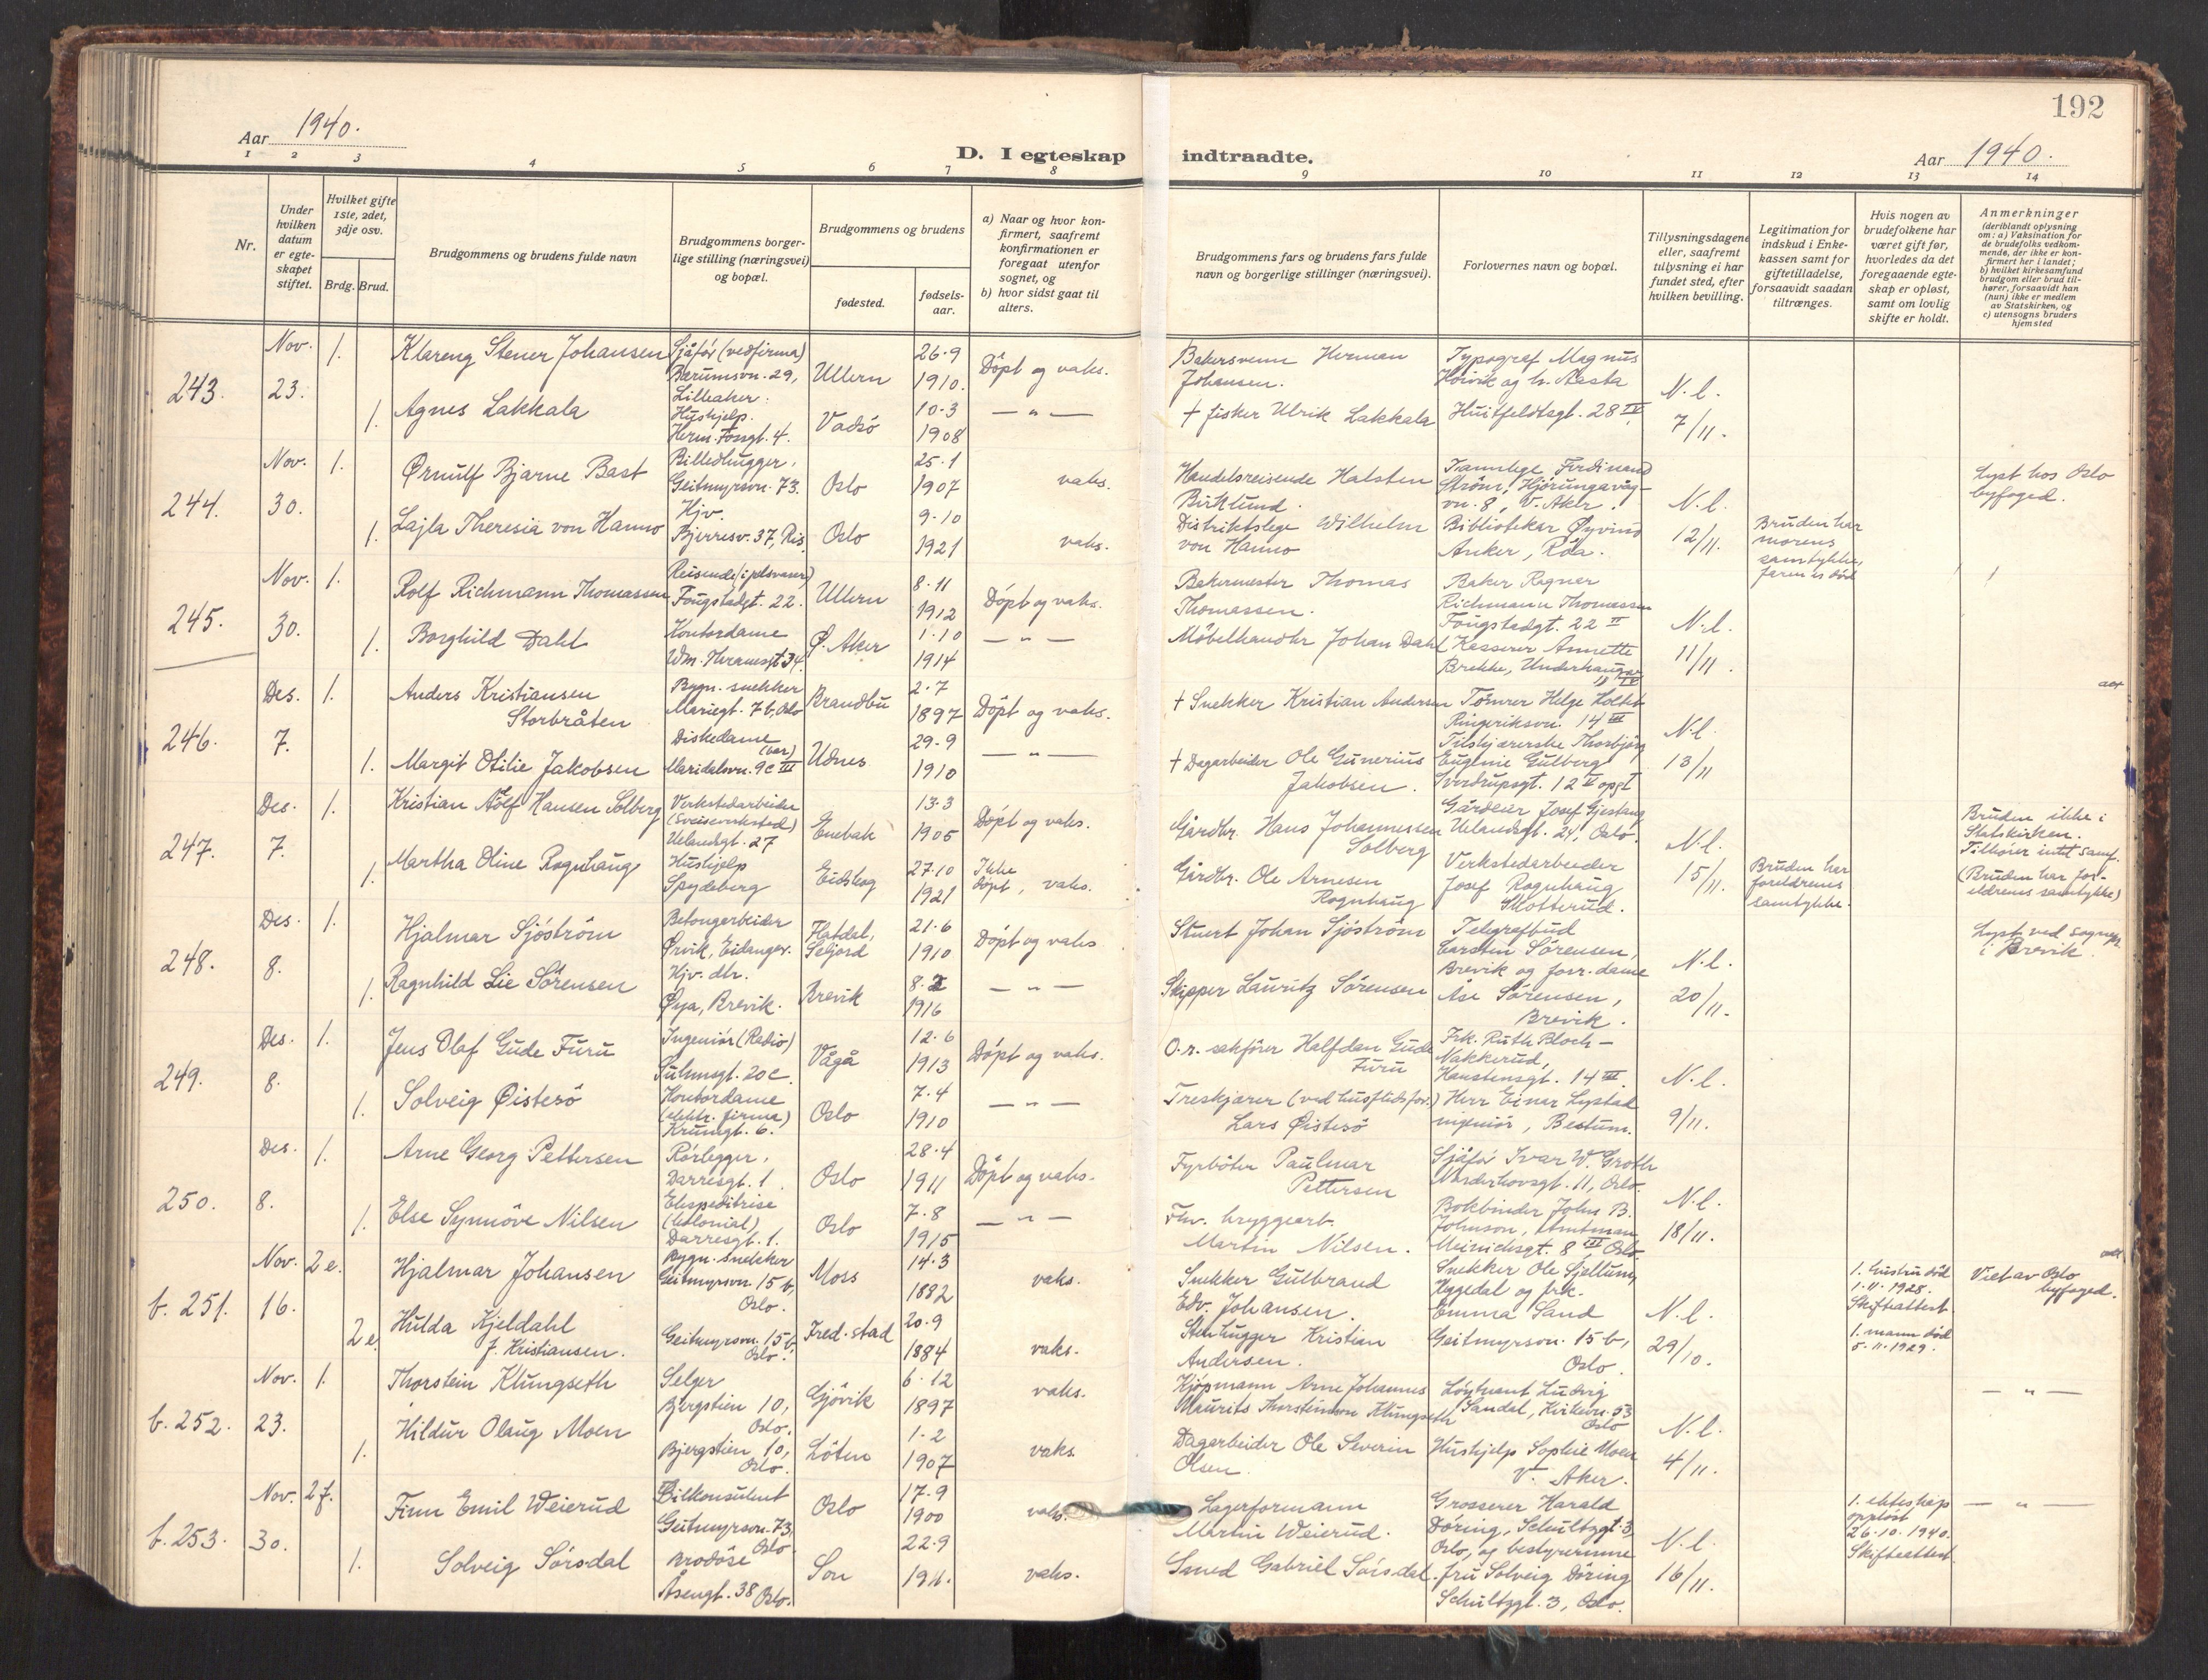 192
Aar 1940.
D. I egteskap indtraadte.
Aar 1940.
1 2 3 4 5 6 7 8 9 10 11 12 13 14
Nr.
Under hvilken datum er egteskapet stiftet.
Hvilket gifte 1ste, 2det, 3dje osv.
Brdg. Brud.
Brudgommens og brudens fulde navn
Brudgommens borgerlige stilling (næringsvei) og bopæl.
Brudgommens og brudens
fødested.
fødselsaar.
a) Naar og hvor konfirmert, saafremt konfirmationen er foregaat utenfor sognet, og
b) hvor sidst gaat til alters.
Brudgommens fars og brudens fars fulde navn og borgerlige stillinger (næringsvei).
Forlovernes navn og bopæl.
Tillysningsdagene eller, saafremt tillysning ei har fundet sted, efter hvilken bevilling.
Legitimation for indskud i Enkekassen samt for giftetilladelse, forsaavidt saadan tiltrænges.
Hvis nogen av brudefolkene har været gift før, hvorledes da det foregaaende egteskap er opløst, samt om lovlig skifte er holdt.
Anmerkninger
(deriblandt oplysning om: a) Vaksination for de brudefolks vedkommende, der ikke er konfirmert her i landet;
b) hvilket kirkesamfund brudgom eller brud tilhører, forsaavidt han (hun) ikke er medlem av Statskirken, og
c) utensogns bruders hjemsted
243. Nov. 23. 1. Klareng Stener Johansen
Sjåfør (vedfirma) Bærumsvn. 29, Lilleaker.
Ullern 26.9 1910. Döpt og vaks.
Bakersvenn Herman Johansen.
Typograf Magnus Hoivik og h. Aasta
Huitfeldtsgt. 28 IV.
N.l. 7/11.
1. Agnes Lakkala
Hushjelp. Herm. Fossgt. 4.
Vadsö 10.3 1908 — " —
† fisker Ulrik Lakkala
244. Nov. 30. 1. Ørnulf Bjarne Bast
Billedhugger, Geitmyrsvn. 73.
Oslo 25.1 1907 vaks.
Handelsreisende Halsten Birklund.
Tannlege Ferdinand Ström, Hjörungavågvn. 8, V. Aker.
N.l. 12/11.
Lyst hos Oslo byfoged.
1. Lajla Theresia von Hanno
Hjv. Bjerresv. 37, Ris.
Oslo 9.10 1921 vaks.
Distriktslege Wilhelm von Hanno
Bibliotekar Øyvind Anker, Röa.
Bruden har morens samtykke, faren er död
245. Nov. 30. 1. Rolf Richmann Thomassen
Reisende (i pelsvarer) Fougstadgt. 22.
Ullern 8.11 1912 Döpt og vaks.
Bakermester Thomas Thomassen.
Baker Ragnar Richmann Thomassen Fougstadgt. 22 II
N.l. 11/11.
1. Borghild Dahl
Kontordame Wm. Thranesgt 34.
Ø. Aker 1.10 1914 — " —
Möbelhandler Johan Dahl
Kasserer Annette Brekke, Underhaugsv.
246. Des. 7. 1. Anders Kristiansen Storbråten
Bygn. snekker Mariegt. 7b, Oslo
Brandbu 2.7 1897 Döpt og vaks.
† Snekker Kristian Andersen
Tömrer Helge Holth Ringeriksvn. 14 III
N.l. 13/11
1. Margit Otilie Jakobsen
Diskedame (bar) Maridalsvn. 9c III
Udnes 29.9 1910 — " —
† Dagarbeider Ole Gunerius Jakobsen.
Tilskjærerske Thorbjörg Eugenie Gulberg Sverdrupsgt. 12 V opg I
247. Des. 7. 1. Kristian Adolf Hansen Solberg
Verkstedarbeider (Sveiseverksted) Uelandsgt. 27
Enebak 13.3 1905 Döpt og vaks.
Gårdbr. Hans Johannessen Solberg
Gårdeier Josef Gjestang Uelandsgt. 24, Oslo.
N.l. 15/11.
Bruden ikke i Statskirken. Tilhörer intet samf. (Bruden har foreldrenes samtykke)
1. Martha Oline Rognhaug
Hushjelp Spydeberg
Eidskog 27.10 1921 Ikke döpt, vaks.
Gårdbr. Ole Arnesen Rognhaug
Verkstedarbeider Josef Rognhaug Skotterud.
Bruden har foreldrenes samtykke.
248. Des. 8. 1. Hjalmar Sjöström
Betongarbeider Ørvik, Eidanger.
Flatdal, Seljord 21.6 1910 Döpt og vaks
Stuert Johan Sjöström
Telegrafbud Carsten Sörensen, Brevik og forr.dame Åse Sörensen, Brevik.
N.l. 20/11.
Lyst ved sognepr. i Brevik.
1. Ragnhild Lie Sörensen
Hjv. dtr. Øya, Brevik.
Brevik 8.2 1916 — " —
Skipper Lauritz Sörensen
249. Des. 8. 1. Jens Olaf Gude Furu
Ingeniör (Radio) Sulmsgt. 20c.
Vågå 12.6 1913 Döpt og vaks.
O.r. sakförer Halfdan Gude Furu
Frk. Ruth Bloch-Nakkerud, Hanstensgt. 14 III.
N.l. 9/11.
1. Solveig Øistesö
Kontordame (elektr. firma) Krumgt. 6.
Oslo 7.4 1910 — " —
Treskjærer (ved husflidsfor.) Lars Øistesö
Herr Einar Lystad ingeniör, Bestum.
250. Des. 8. 1. Arne Georg Pettersen
Rörlegger, Darresgt. 1.
Oslo 28.4 1911 Döpt og vaks.
Fyrböter Paulmar Pettersen
Sjåför Ivar W. Groth Norderhovsgt. 11, Oslo.
N.l. 18/11.
1. Else Synnöve Nilsen
Ekspeditrise (kolonial) Darresgt. 1.
Oslo 7.8 1915 — " —
Fhv. bryggearb. Martin Nilsen.
Bokbinder John B. Johnson, Amtmann Meinichsgt. 8 III Oslo
b. 251. Nov. 16. 2e. Hjalmar Johansen
Bygn. snekker Geitmyrsvn. 15b, Oslo.
Moss 14.3 1882 vaks.
Snekker Gulbrand Edv. Johansen.
Snekker Ole Sjellum, Eggedal og frk. Emma Sand Geitmyrsvn. 15b, Oslo.
N.l. 29/10.
1. hustru död 1.11.1928. Skifteattest.
Viet av Oslo byfoged.
2e. Hulda Kjeldahl f. Kristiansen.
Geitmyrsvn. 15b, Oslo.
Fred.stad 20.9 1884 vaks.
Stenhugger Kristian Andersen.
1. mann död 5.11.1929.
b. 252. Nov. 23. 1. Thorstein Klungseth
Selger Bjergstien 10, Oslo.
Gjövik 6.12 1897 vaks.
Kjöpmann Arne Johannes Maurits Thorsteinson Klungseth
Löytnant Ludvig Sandal, Kirkevn. 53 Oslo
N.l. 4/11.
— " —
1. Hildur Olaug Moen
Bjergstien 10, Oslo.
Löten 1.2 1907 vaks.
Dagarbeider Ole Severin Olsen.
Hushjelp Sophie Moen V. Aker.
b. 253. Nov. 30. 2f. Finn Emil Weierud
Bilkonsulent Geitmyrsvn. 73, Oslo.
Oslo 17.9 1900 vaks.
Lagerformann Martin Weierud.
Grosserer Harald Döring, Schultzgt. 3, Oslo, og bestyrerinne fru Solveig Döring Schultzgt. 3, Oslo.
N.l. 16/11.
1. ekteskap opplöst 26.10.1940. Skifteattest
— " —
1. Solveig Sörsdal
Brodöse Åsengt. 38 Oslo.
Son 22.9 vaks.
Smed Gabriel Sörsdal.